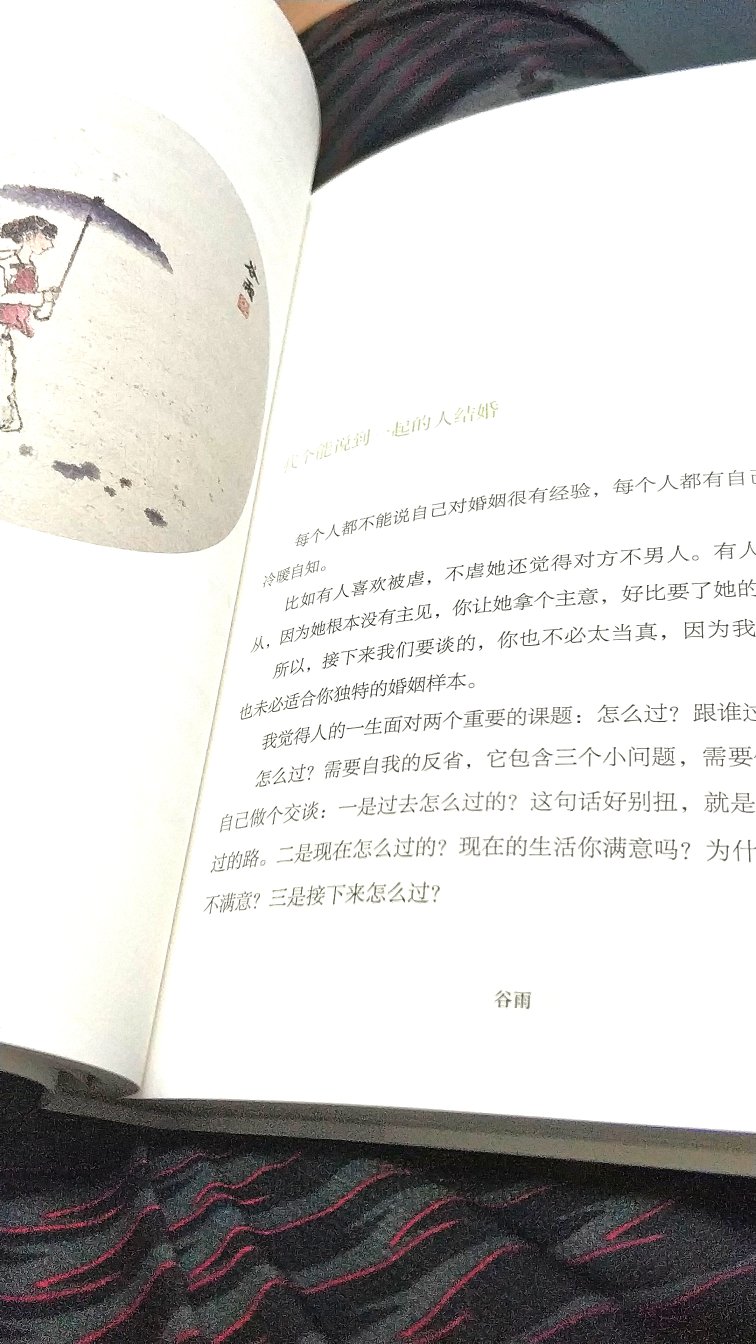 找个能说到一起的人结婚
每个人都不能说自己对婚姻很有经验，每个人都有自己
冷暖自知。
比如有人喜欢被虐，不虐她还觉得对方不男人。有人
从，因为她根本没有主见，你让她拿个主意，好比要了她的
所以，接下来我们要谈的，你也不必太当真，因为我
也未必适合你独特的婚姻样本。
我觉得人的一生面对两个重要的课题：怎么过？跟谁过
怎么过？需要自我的反省，它包含三个小问题，需要
自己做个交谈：一是过去怎么过的？这句话好别扭，就是
过的路。二是现在怎么过的？现在的生活你满意吗？为什
不满意？三是接下来怎么过？
谷雨